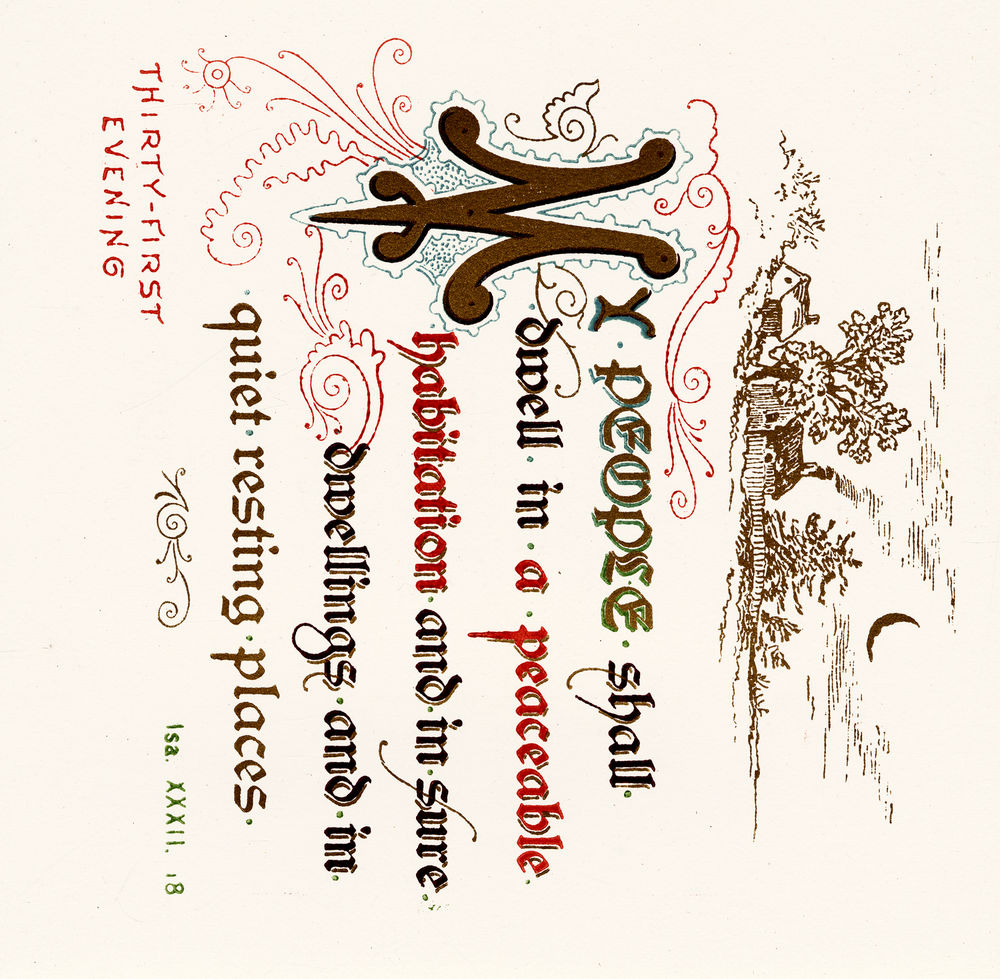 MY PEOPLE shall
dwell in a peaceable
habitation and in sure
dwellings and in
quiet resting places
Isa. XXXII. 18
THIRTY-FIRST
EVENING